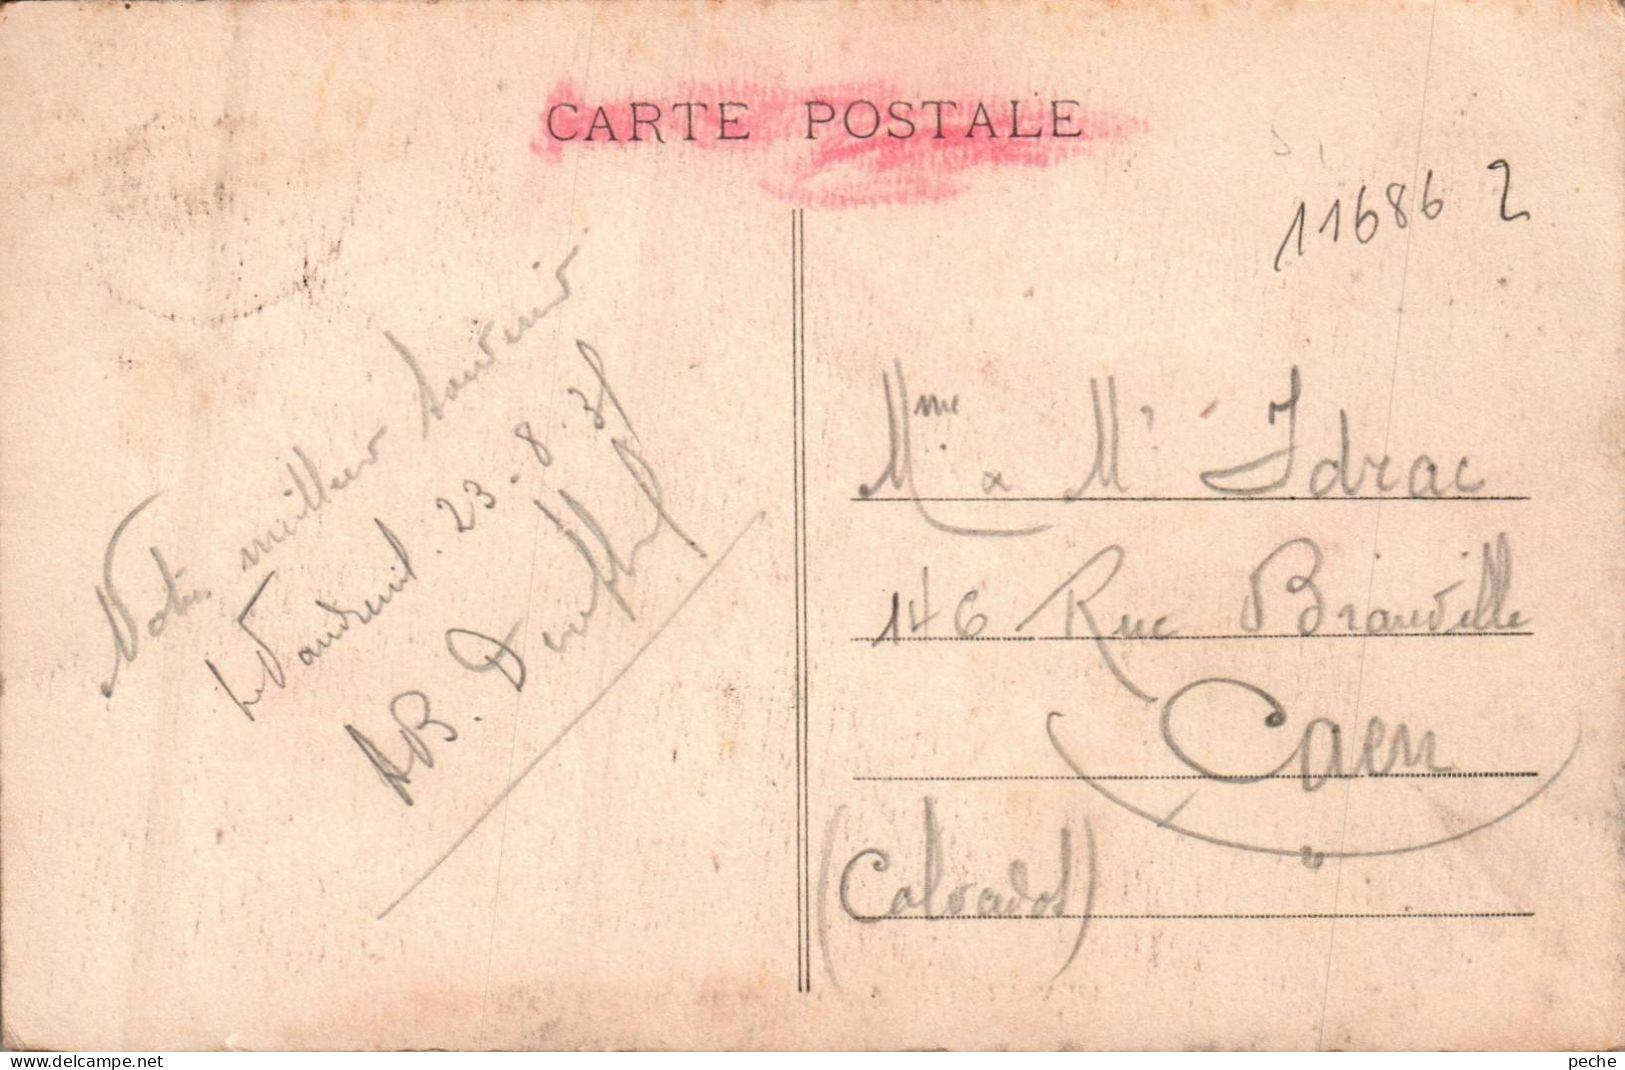 CARTE POSTALE
11686 2
Notre meilleur souvenir
Le Vaudreuil . 23 - 8 . 35
AB.
Mme & Mr Idrac
146 Rue Branville
Caen
(Calvados)
www.delcampe.net
peche